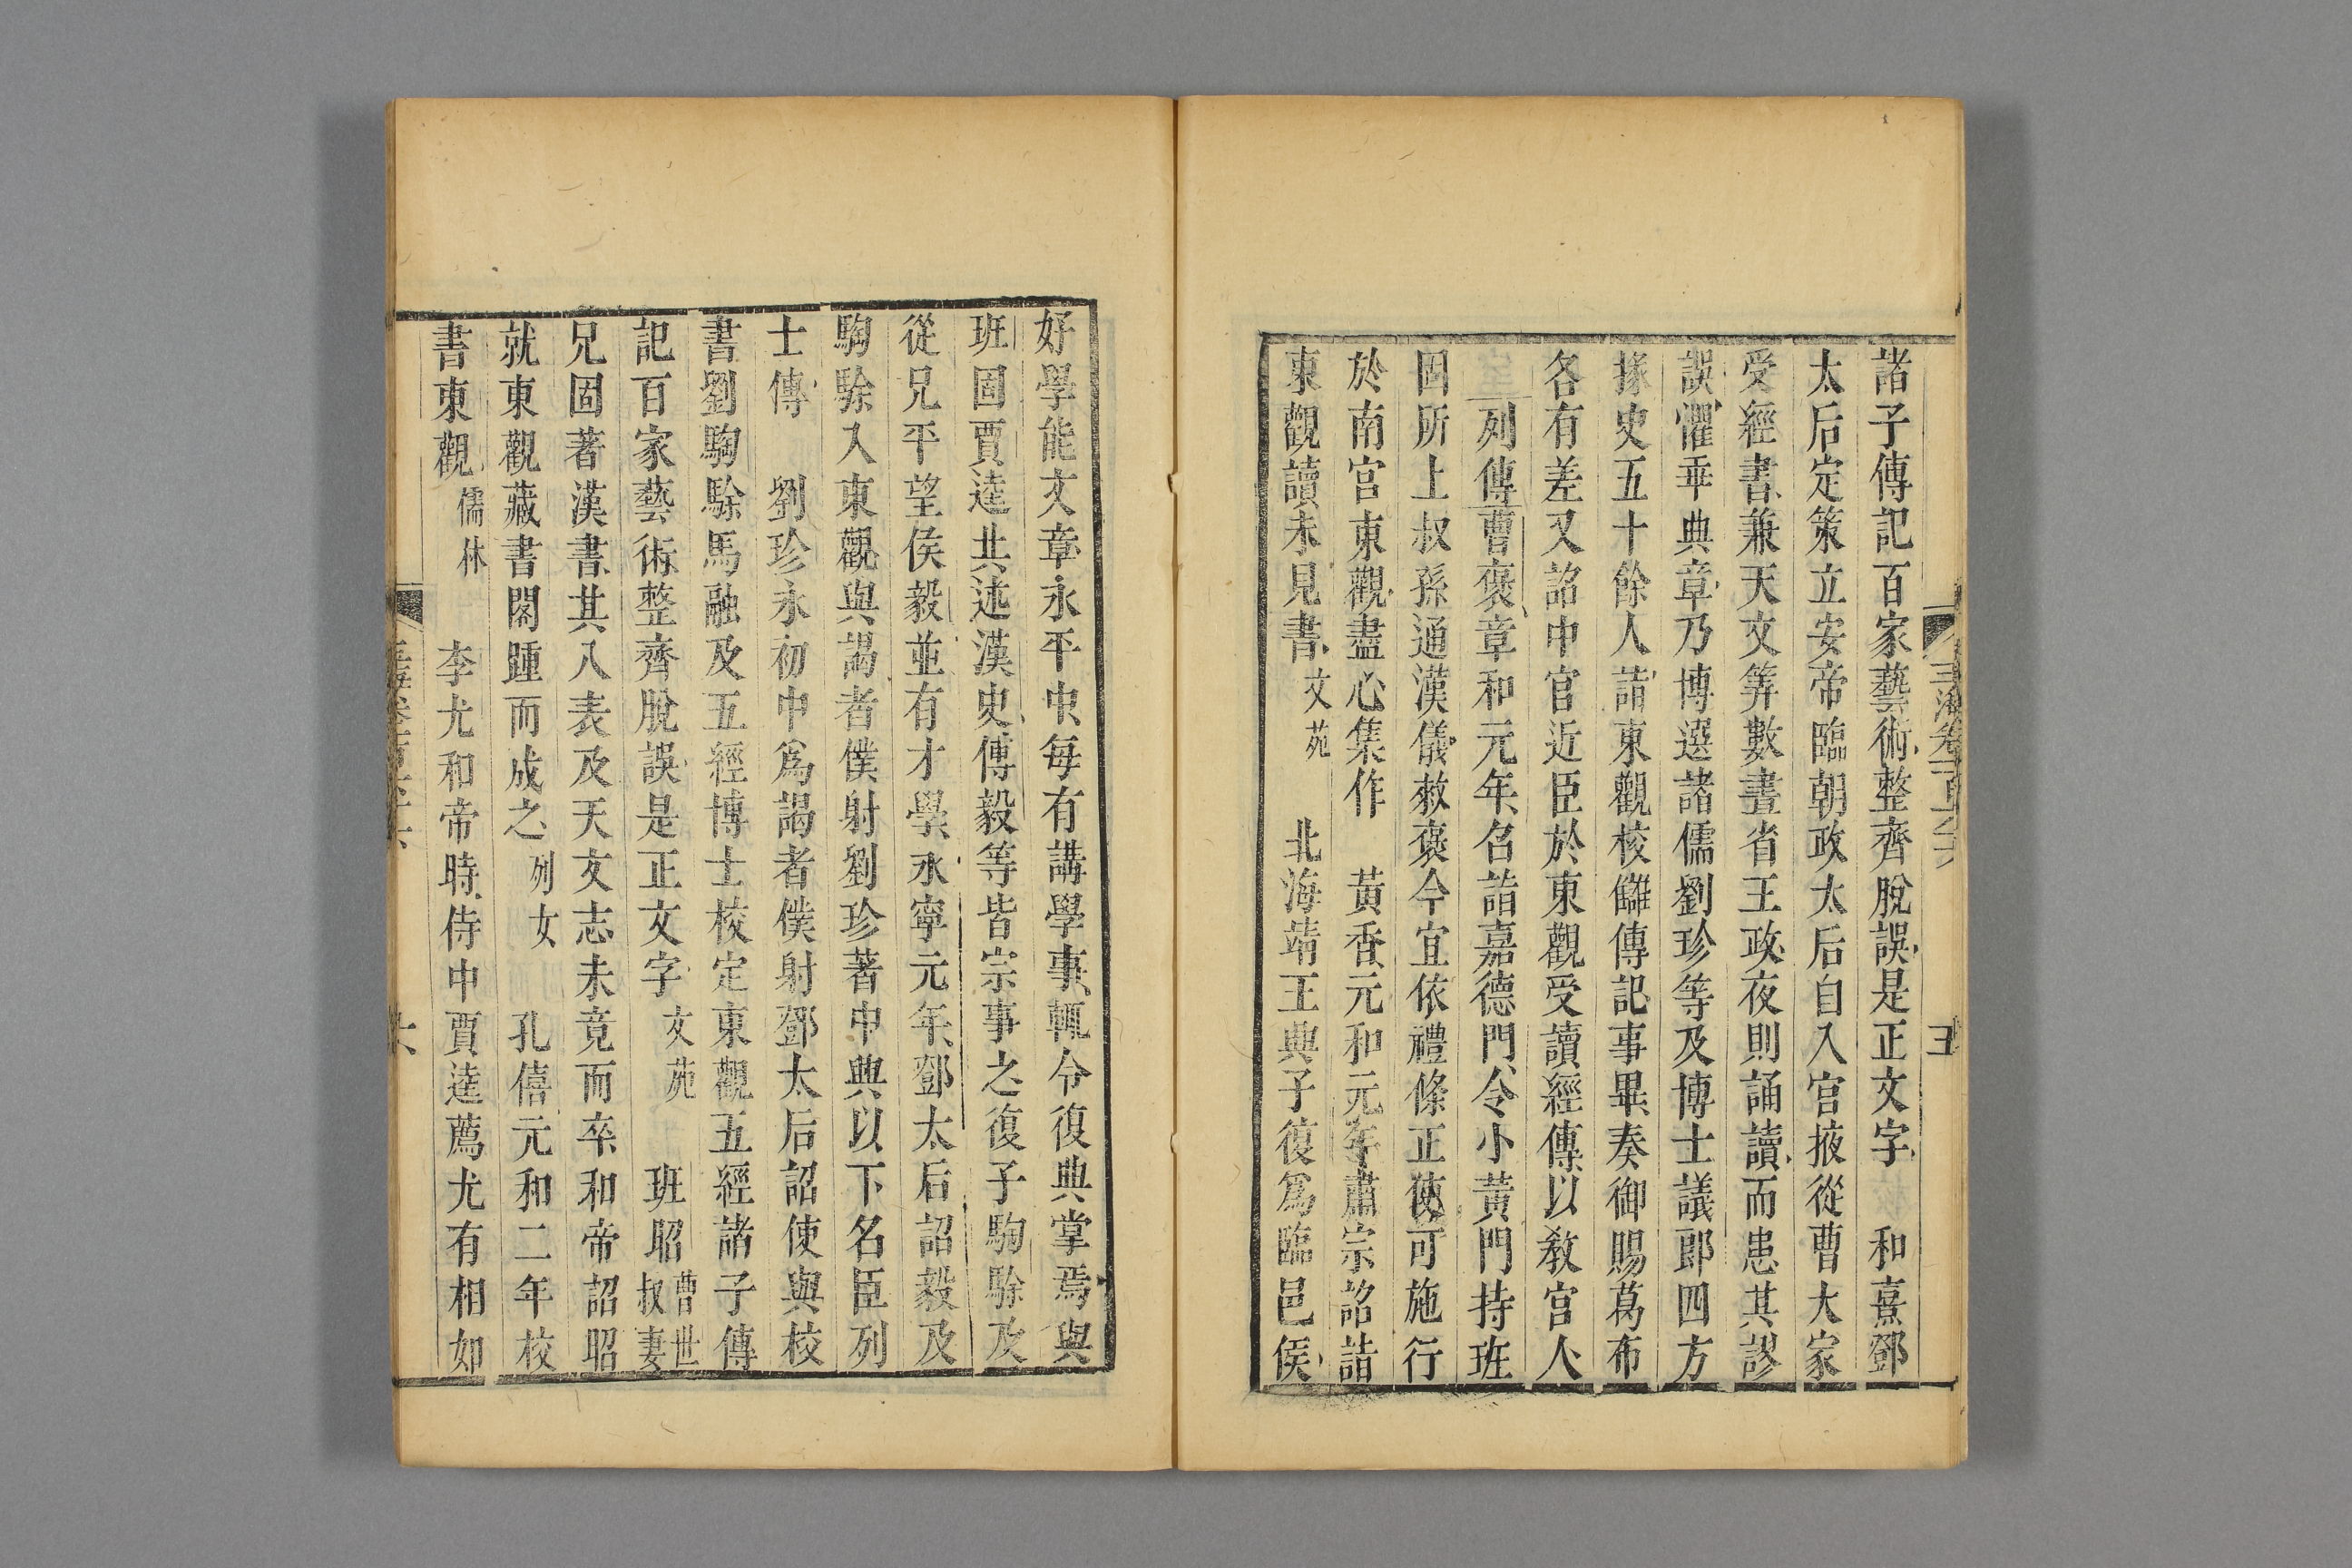 諸子傳記百家藝術整齊脫誤是正文字　和熹鄧
太后定策立安帝臨朝政太后自入宫掖從曹大家
受經書兼天文筭數晝省王政夜則誦讀而患其謬
誤懼乖典章乃博選諸儒劉珍等及博士議郎四方
掾史五十餘人詣東觀校讎傳記事畢奏御賜葛布
各有差又詔中官近臣於東觀受讀經傳以敎宫人
列傳曹褒章和元年召詣嘉德門令小黃門持班
固所上叔孫通漢儀敕褒今宜依禮條正使可施行
於南宫東觀盡心集作　黃香元和元年肅宗詔詣
東觀讀未見書文苑　北海靖王興子復爲臨邑侯
好學能文章永平中每有講學事輒令復典掌焉與
班固賈逵共述漢史傅毅等皆宗事之復子騊駼及
從兄平望侯毅並有才學永寧元年鄧太后詔毅及
騊駼入東觀與謁者僕射劉珍著中興以下名臣列
士傳　劉珍永初中爲謁者僕射鄧太后詔使與校
書劉騊駼馬融及五經博士校定東觀五經諸子傳
記百家藝術整齊脫誤是正文字文苑　班昭曹世叔妻
兄固著漢書其八表及天文志未竟而卒和帝詔昭
就東觀藏書閣踵而成之列女　孔僖元和二年校
書東觀儒林　李尤和帝時侍中賈逵薦尤有相如